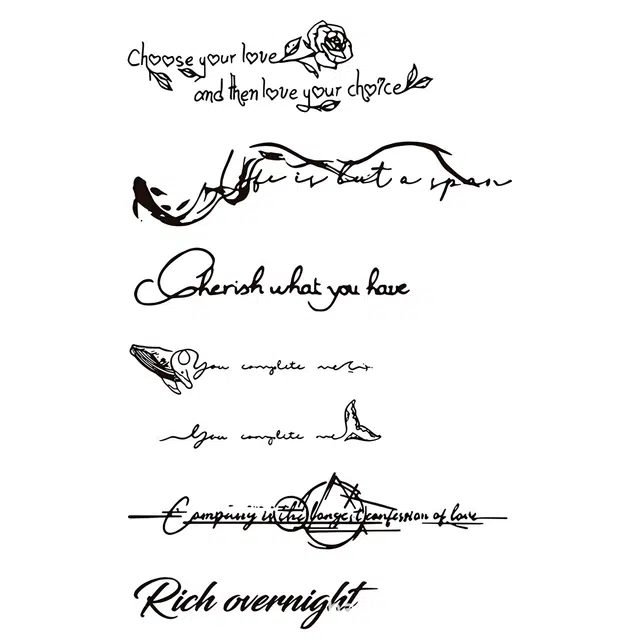 Choose your love
and then love your choice
Life is but a span
Cherish what you have
You complete me
You complete me
Company is the longest confession of love
Rich overnight